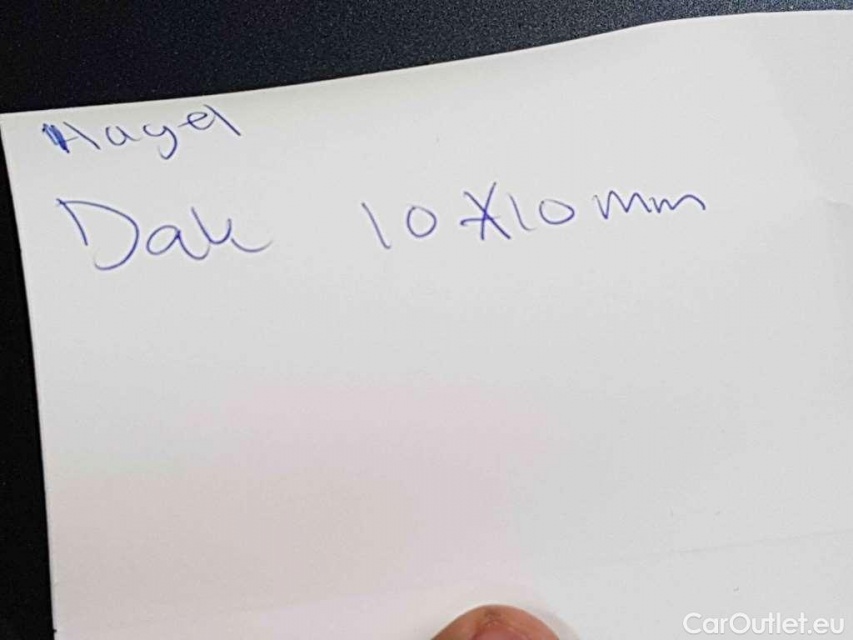 Hagel
Dak 10X10mm
CarOutlet.eu